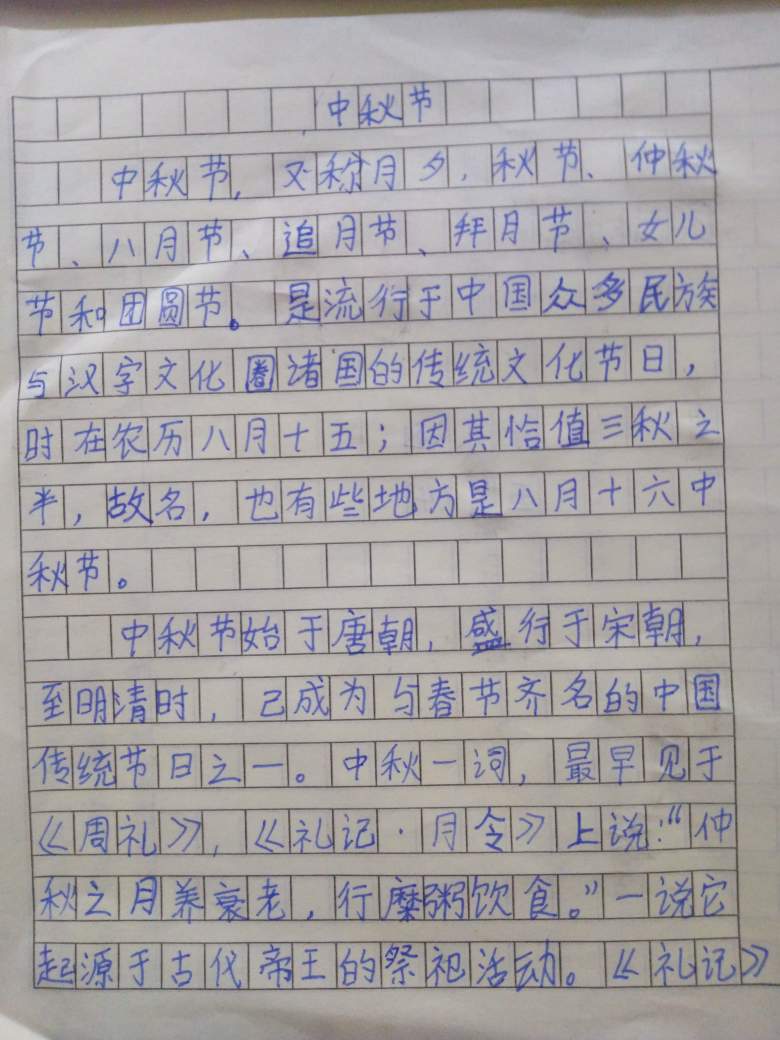 中秋节
中秋节,又称月夕,秋节、仲秋
节、八月节、追月节、拜月节、女儿
节和团圆节。是流行于中国众多民族
与汉字文化圈诸国的传统文化节日,
时在农历八月十五;因其恰值三秋之
半,故名,也有些地方是八月十六中
秋节。
中秋节始于唐朝,盛行于宋朝,
至明清时,己成为与春节齐名的中国
传统节日之一。中秋一词,最早见于
《周礼》,《礼记·月令》上说:“仲
秋之月养衰老,行糜粥饮食。”一说它
起源于古代帝王的祭祀活动。《礼记》